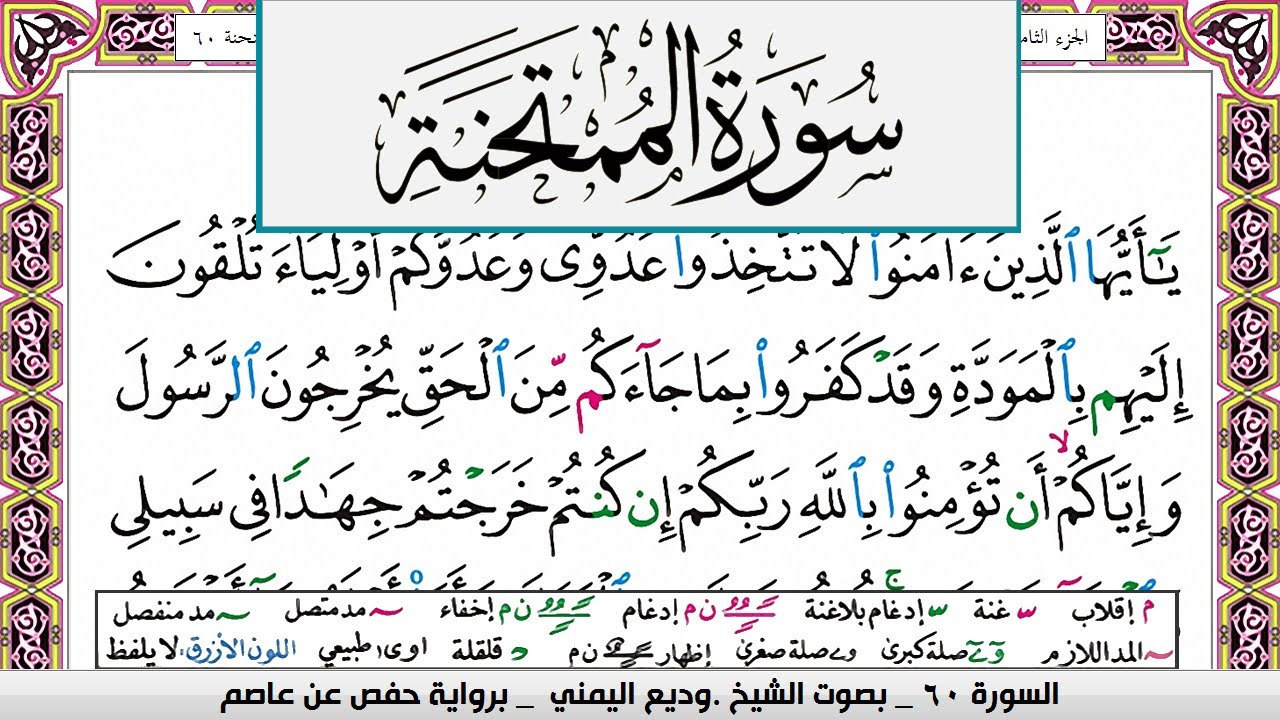 الجزء الثام
تحنة ٦٠
سُورَةُ الْمُمْتَحَنَةِ
يَٰٓأَيُّهَا ٱلَّذِينَ ءَامَنُوا۟ لَا تَتَّخِذُوا۟ عَدُوِّى وَعَدُوَّكُمْ أَوْلِيَآءَ تُلْقُونَ
إِلَيْهِم بِٱلْمَوَدَّةِ وَقَدْ كَفَرُوا۟ بِمَا جَآءَكُم مِّنَ ٱلْحَقِّ يُخْرِجُونَ ٱلرَّسُولَ
وَإِيَّاكُمْ ۙ أَن تُؤْمِنُوا۟ بِٱللَّهِ رَبِّكُمْ إِن كُنتُمْ خَرَجْتُمْ جِهَٰدًا فِى سَبِيلِى
م إقلاب غنة إدغام بلاغنة ن م إدغام ن م إخفاء مد متصل مد منفصل
المد اللازم صلة كبرى صلة صغرى إظهار ن م قلقلة اوى طبيعي اللون الأزرق: لا يلفظ
السورة ٦٠ _ بصوت الشيخ .وديع اليمني _ برواية حفص عن عاصم